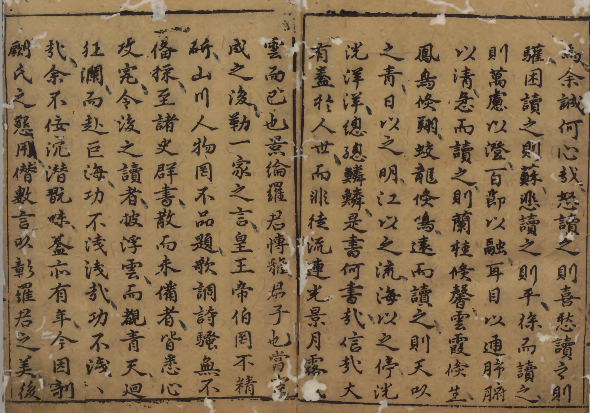 焉余誠何心哉怒讀之則喜愁讀之則
驩困讀之則蘇悲讀之則平徐而讀之
則萬慮以澄百節以融耳目以通肺腑
以清急而讀之則蘭桂倏馨雲霞倏生
鳳鳥倏翔蛟龍倏鳴遠而讀之則天以
之青日以之明江以之流海以之停洸
洸洋洋總總鱗鱗是書何書哉信哉大
有益於人世而非徒流連光景月露
雲而已也景倫羅君博雅君子也當
成之後勒一家之言皇王帝伯罔不精
研山川人物罔不品題歌調詩騷無不
備採至諸史群書散而未備者皆悉心
攻究令後之讀者披浮雲而覩青天廻
狂瀾而赴巨海功不浅浅哉功不浅、
哉余不佞沉潛既昧蓋亦有年今因剞
劂氏之懇用僭數言以彰羅君之美後